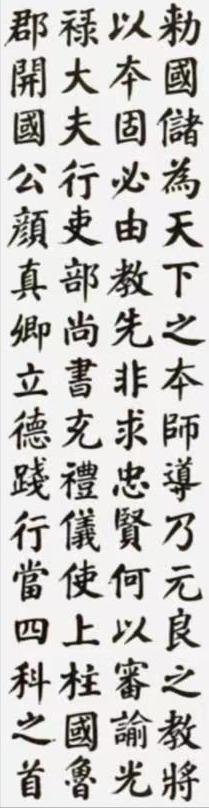 勅國儲為天下之本師導乃元良之教將
以本固必由教先非求忠賢何以審諭光
祿大夫行吏部尚書充禮儀使上柱國魯
郡開國公顏真卿立德踐行當四科之首